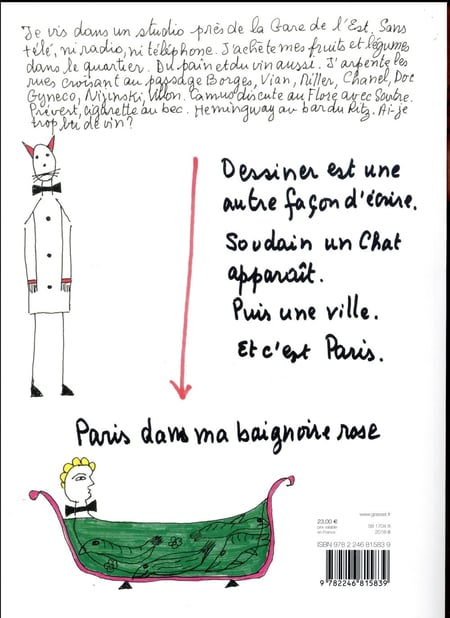 Je vis dans un studio près de la Gare de l'Est. Sans
télé, ni radio, ni téléphone. J'achète mes fruits et légumes
dans le quartier. Du pain et du vin aussi. J'arpente les
rues croisant au passage Borges, Vian, Miller, Chanel, Doc
Gyneco, Nijinski, Villon. Camus discute au Flore avec Sartre.
Prévert, cigarette au bec. Hemingway au bar du Ritz. Ai-je
trop bu de vin?
Dessiner est une
autre façon d'écrire.
Soudain un Chat
apparaît.
Puis une ville.
Et c'est Paris.
Paris dans ma baignoire rose
www.grasset.fr
23,00 €
prix valable
en France
58 1704 8
2016-II
ISBN 978 2 246 81583 9
9 782246 815839